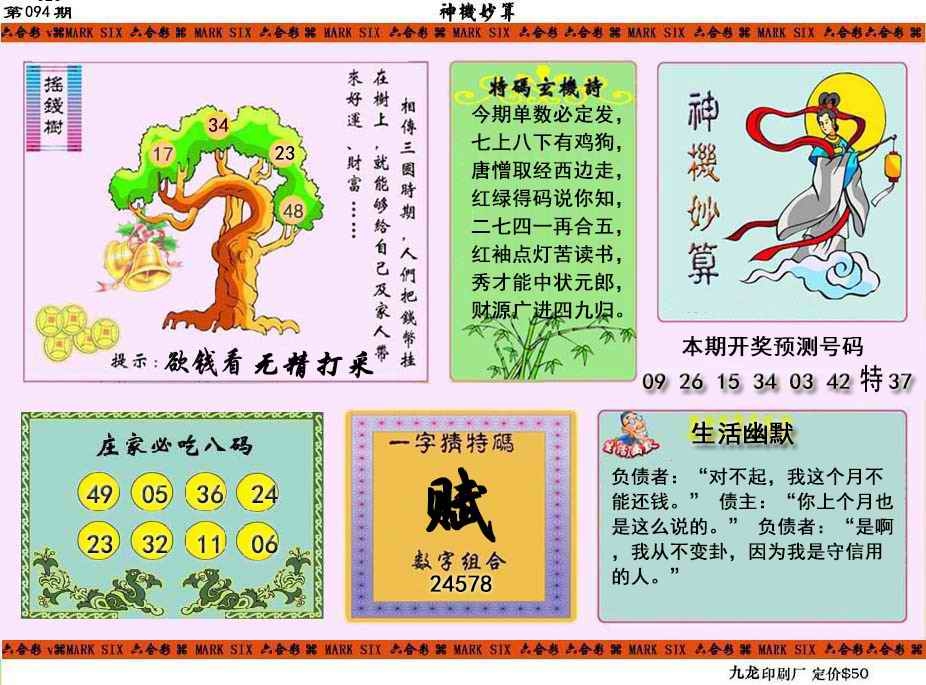 第094期
神機妙算
六合彩 MARK SIX 六合彩 MARK SIX 六合彩 MARK SIX 六合彩 MARK SIX 六合彩 MARK SIX 六合彩 MARK SIX 六合彩 MARK SIX 六合彩
搖錢樹
34
17
23
48
相傳三國時期，人們把錢幣挂
在樹上，就能够給自己及家人帶
來好運、財富……
提示：欲钱看无精打采
特碼玄機詩
今期单数必定发，
七上八下有鸡狗，
唐憎取经西边走，
红绿得码说你知，
二七四一再合五，
红袖点灯苦读书，
秀才能中状元郎，
财源广进四九归。
神機妙算
本期开奖预测号码
09 26 15 34 03 42 特37
庄家必吃八码
49 05 36 24
23 32 11 06
一字猜特碼
赋
数字组合
24578
生活幽默
生活幽默
负债者：“对不起，我这个月不
能还钱。” 债主：“你上个月也
是这么说的。” 负债者：“是啊
，我从不变卦，因为我是守信用
的人。”
六合彩 MARK SIX 六合彩 MARK SIX 六合彩 MARK SIX 六合彩 MARK SIX 六合彩 MARK SIX 六合彩 MARK SIX 六合彩 MARK SIX 六合彩
九龙印刷厂 定价$50